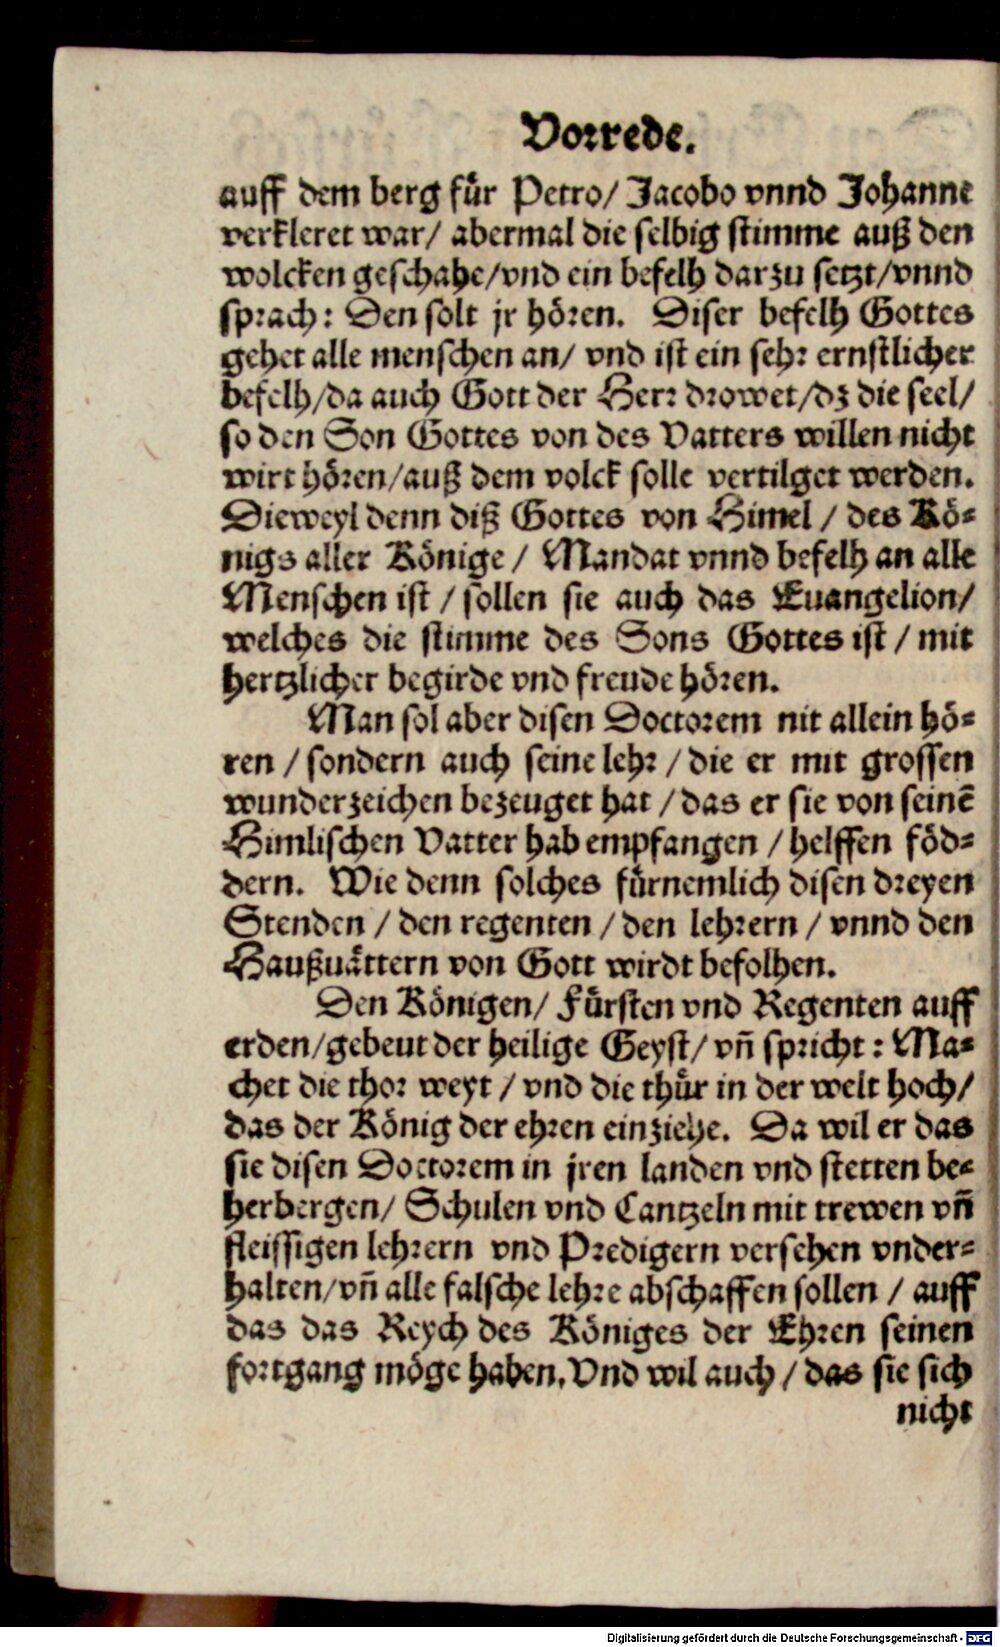 Vorrede.
auff dem berg fuͤr Petro/ Jacobo vnnd Johanne
verkleret war/ abermal die selbig stimme auß den
wolcken geschahe/vnd ein befelh darzu setzt/vnnd
sprach: Den solt jr hoͤren. Diser befelh Gottes
gehet alle menschen an/ vnd ist ein sehr ernstlicher
befelh/da auch Gott der Herr drowet/dz die seel/
so den Son Gottes von des Vatters willen nicht
wirt hoͤren/auß dem volck solle vertilget werden.
Dieweyl denn diß Gottes von Himel / des Koͤ-
nigs aller Koͤnige / Mandat vnnd befelh an alle
Menschen ist / sollen sie auch das Euangelion/
welches die stimme des Sons Gottes ist / mit
hertzlicher begirde vnd freude hoͤren.
Man sol aber disen Doctorem nit allein hoͤ-
ren / sondern auch seine lehr / die er mit grossen
wunderzeichen bezeuget hat / das er sie von seinē
Himlischen Vatter hab empfangen / helffen foͤd-
dern. Wie denn solches fuͤrnemlich disen dreyen
Stenden / den regenten / den lehrern / vnnd den
Haußuaͤttern von Gott wirdt befolhen.
Den Koͤnigen/ Fuͤrsten vnd Regenten auff
erden/gebeut der heilige Geyst/ vn̄ spricht: Ma-
chet die thor weyt / vnd die thuͤr in der welt hoch/
das der Koͤnig der ehren einziehe. Da wil er das
sie disen Doctorem in jren landen vnd stetten be-
herbergen/ Schulen vnd Cantzeln mit trewen vn̄
fleissigen lehrern vnd Predigern versehen vnder-
halten/vn̄ alle falsche lehre abschaffen sollen / auff
das das Reych des Koͤniges der Ehren seinen
fortgang moͤge haben. Vnd wil auch / das sie sich
nicht
Digitalisierung gefördert durch die Deutsche Forschungsgemeinschaft - DFG